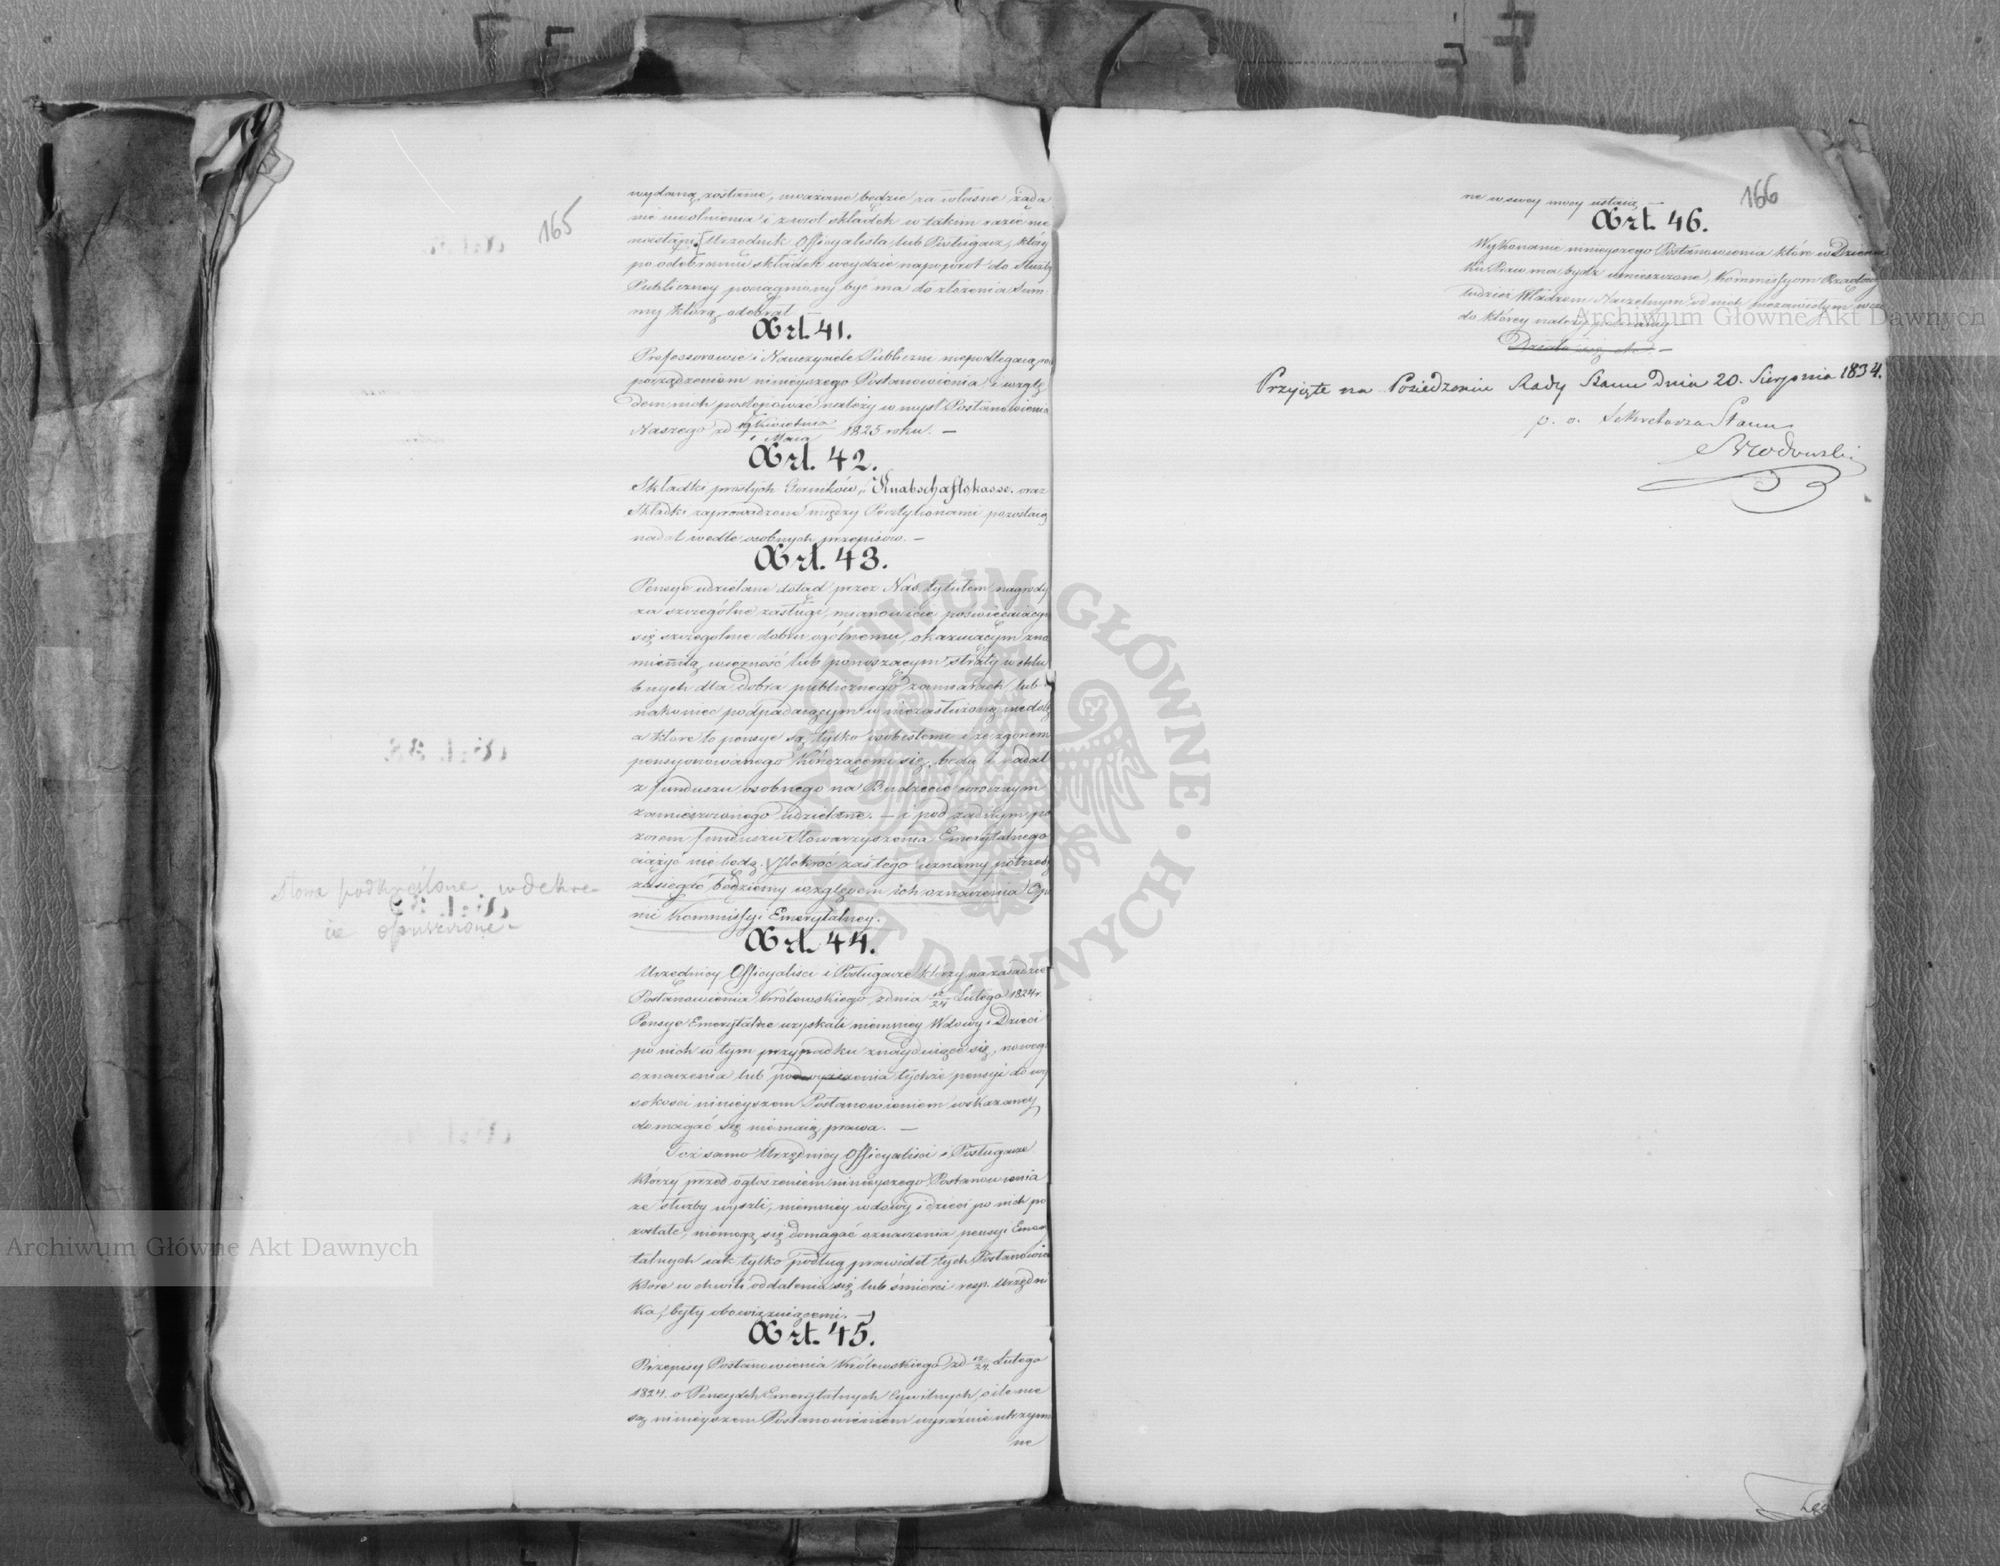 165
wydaną zostanie, uważane będzie za własne żąda
nie uwolnienia i zwrot składek w takim razie nie
nastąpi. Urzędnik Officyalista lub Posługacz, który
po odebraniu składek weydzie napowrot do Służby
Publiczney pociągniony być ma do złożenia Sum-
my którą odebrał. —
Art. 41.
Professorowie i Nauczyciele Publiczni niepodlegaią roz
porządzeniom ninieyszego Postanowienia, i wzglę
dem nich postępować należy w myśl Postanowienia
Naszego zd 19 Kwietnia / 1 Maia 1825 roku. —
Art. 42.
Składki prostych Górników, "Knabschaftskasse" oraz
Składki zaprowadzone między Pocztylionami pozostaią
nadal wedle osobnych przepisów. —
Art. 43.
Pensye udzielane dotąd przez Nas, tytułem nagrody
za szczególne zasługi, mianowicie poświęcaiącym
się szczególnie dobru ogólnemu, okazuiącym zna
mienitą wierność lub ponoszącym straty w chlu
bnych dla dobra publicznego zamiarach lub
nakoniec podpadaiącym w niezasłużoną niedolę
a które to pensye są tylko osobistemi i ze zgonem
pensyonowanego kończącemi się, będą i nadal
z funduszu osobnego na Budżecie rocznym
zamieszczonego udzielane. — i pod żadnym po
zorem funduszu Stowarzyszenia Emerytalnego
ciążyć nie będą. Ilekroć zaś tego uznamy potrzebę
zasięgać będziemy względem ich oznaczenia Opi
nii Kommissyi Emerytalney.
słowa podkreślone w dekre-
cie opuszczone -
Art. 44.
Urzędnicy Officyaliści i Posługacze którzy na zasadzie
Postanowienia Królewskiego z dnia 12/24 Lutego 1824 r.
Pensye Emerytalne uzyskali niemniey Wdowy i Dzieci
po nich w tym przypadku znayduiące się, nowego
oznaczenia lub podwyższenia tychże pensyi do wy
sokości ninieyszem Postanowieniem wskazaney
domagać się nie maią prawa. —
Toż samo Urzędnicy Officyaliści i Posługacze
którzy przed ogłoszeniem ninieyszego Postanowienia
ze służby wyszli, niemniey wdowy i dzieci po nich po
zostałe, niemogą się domagać oznaczenia pensyi Eme
talnych iak tylko podług prawideł tych Postanowień
które w chwili oddalenia się lub śmierci resp. Urzędni
ka, były obowiązuiącemi. —
Art. 45.
Przepisy Postanowienia Królewskiego zd 12/24 Lutego
1824. o Pensyach Emerytalnych Cywilnych, o ile nie
są ninieyszem Postanowieniem wyraźnie utrzyma
ne
166
ne w swey mocy ustaią —
Art. 46.
Wykonanie ninieyszego Postanowienia które w Dzienni
ku Praw ma bydź umieszczone, Kommissyom Rządowym
tudzież Władzom Naczelnym od nich niezawisłym w czem
do którey należy polecamy —
Działo się etc. —
Przyięte na Posiedzeniu Rady Stanu Dnia 20. Sierpnia 1834.
p. o. Sekretarza Stanu
Brodowski
Archiwum Główne Akt Dawnych
Archiwum Główne Akt Dawnych
ARCHIWUM GŁÓWNE · AKT DAWNYCH ·